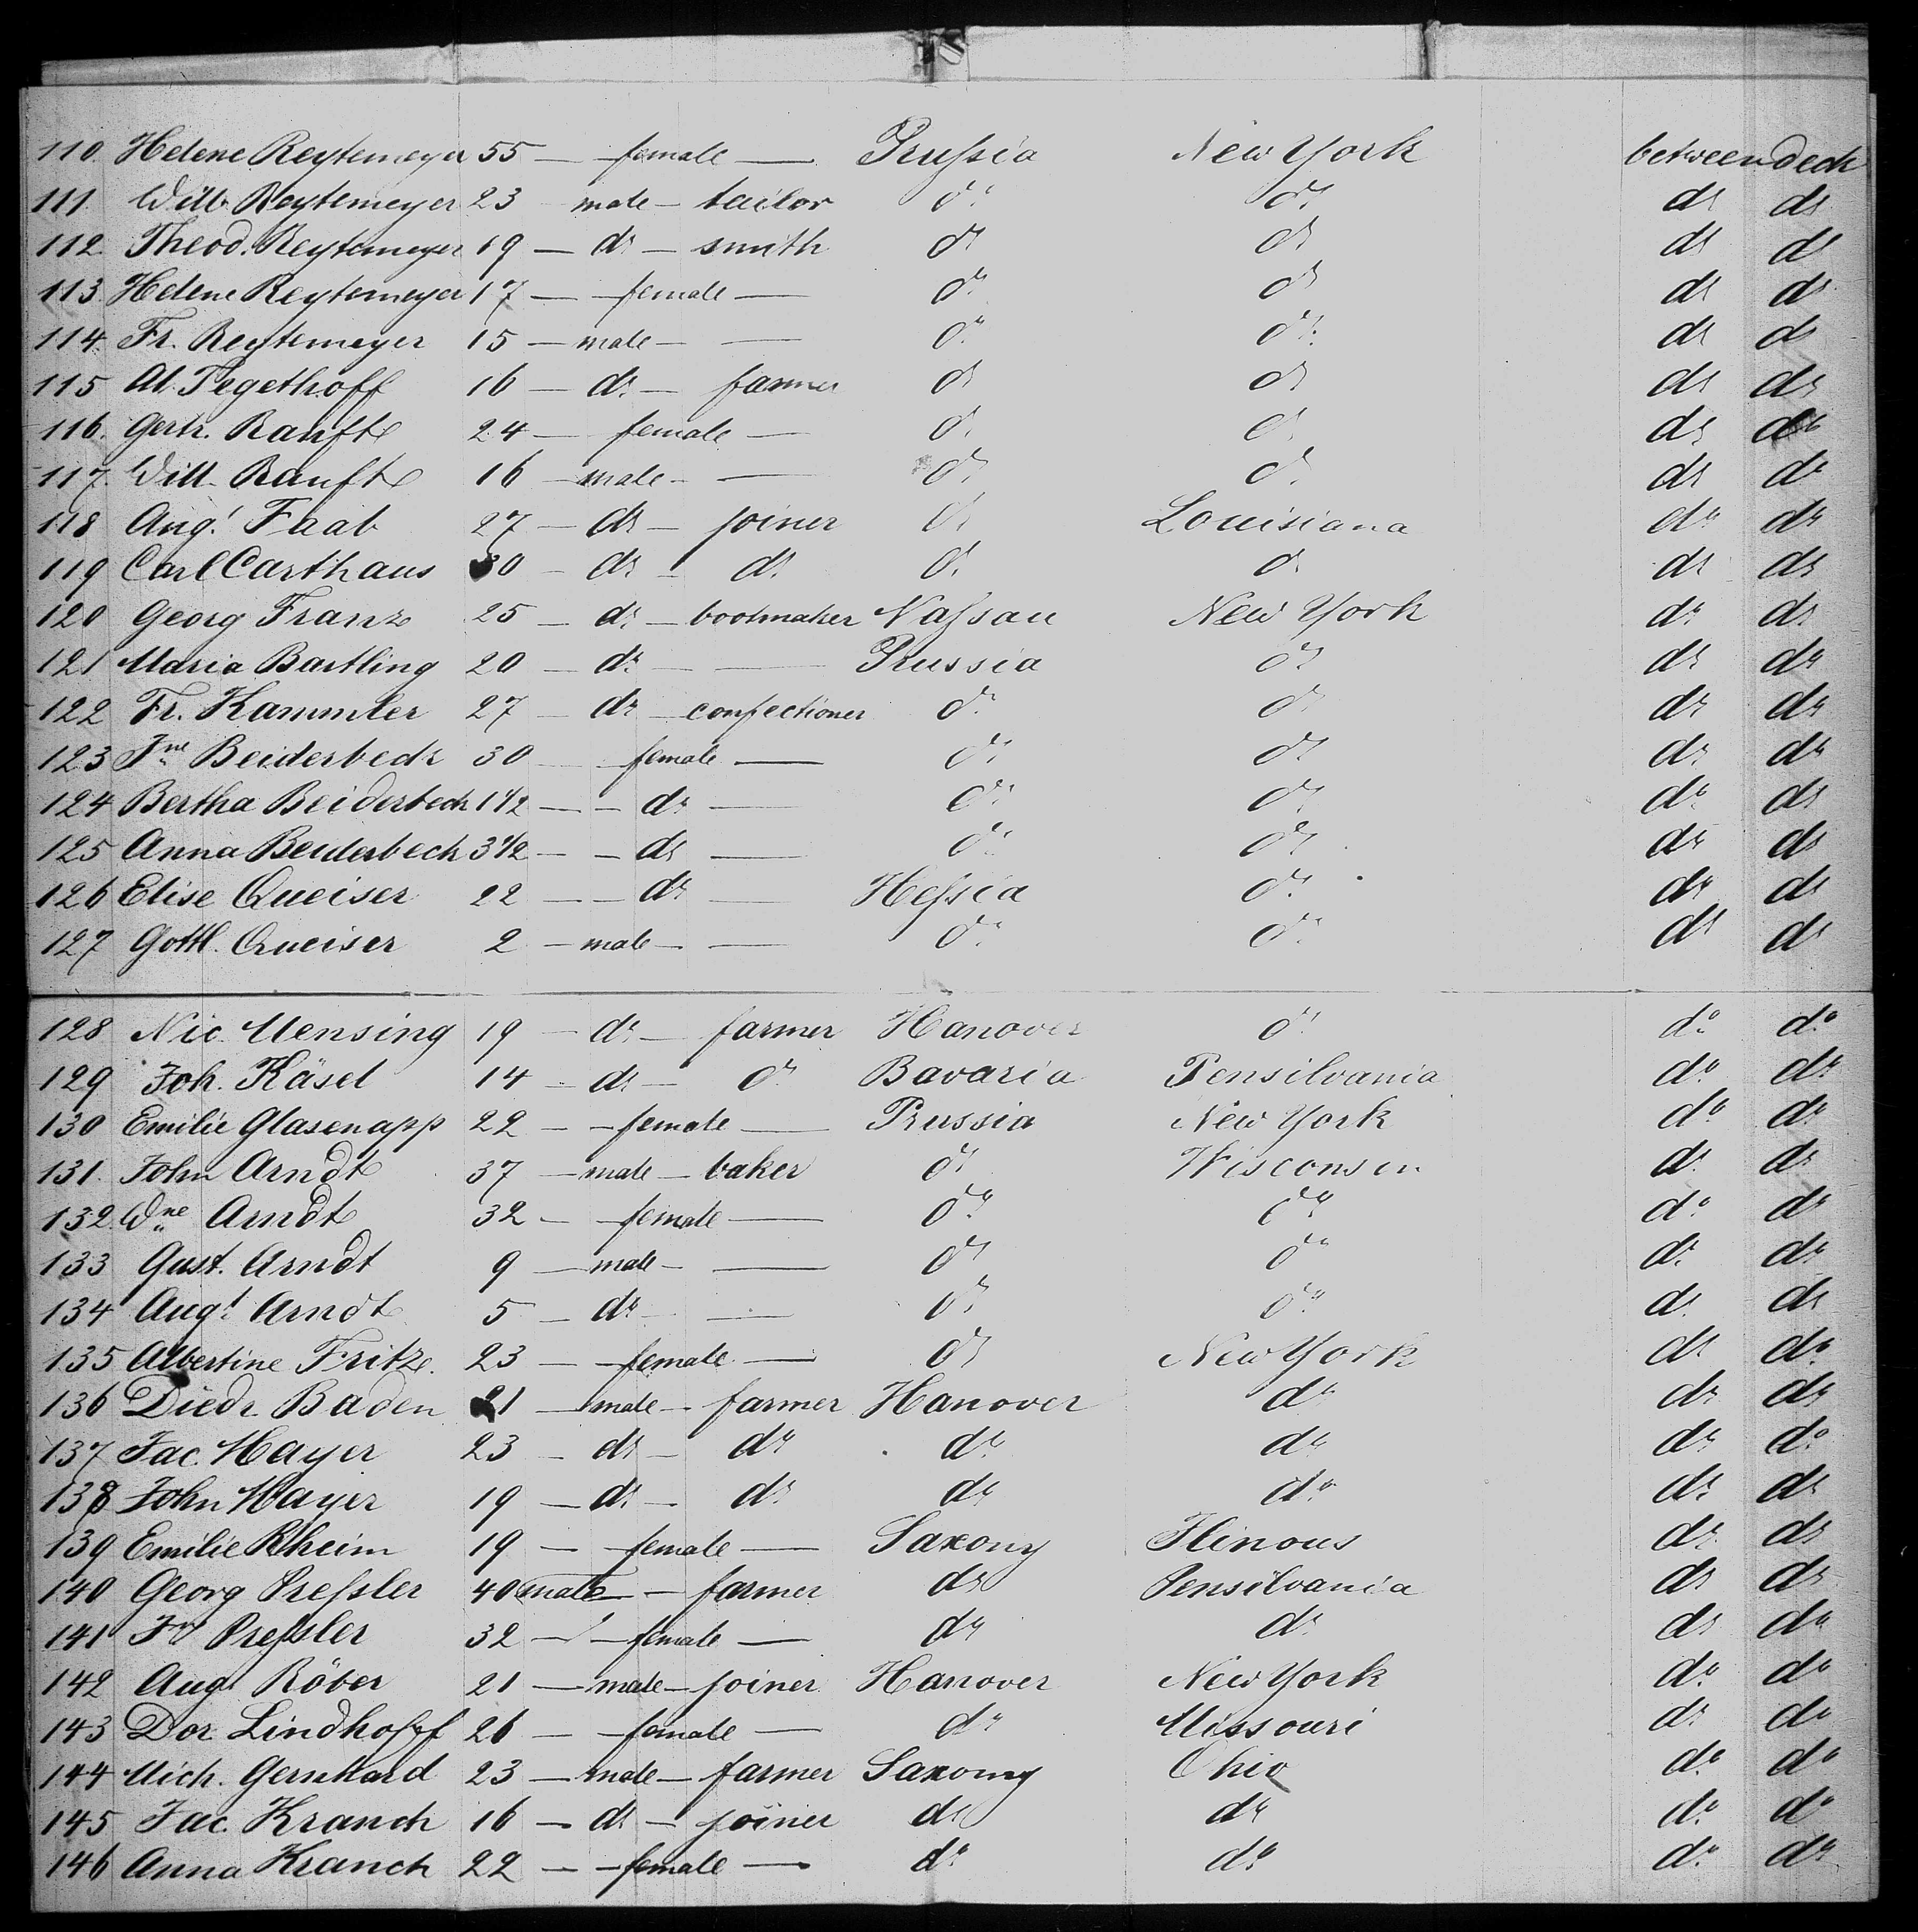 110. Helene Reytemeyer 55 — female — Prussia New York between deck
111. Will. Reytemeyer 23 male — tailor do do do do
112. Theod. Reytemeyer 19 — do — smith do do do do
113. Helene Reytemeyer 17 — female — do do do do
114. Fr. Reytemeyer 15 — male — — do do do do
115 Al. Tegethoff 16 — do — farmer do do do do
116. Gertr. Ranfte 24 — female — do do do do
117. Will. Ranfte 16 — male — — do do do do
118 Augt. Faab 27 — do — joiner do Louisiana do do
119 Carl Carthaus 30 — do — do do do do do
120 Georg Franz 25 — do — bootmaker Nassau New York do do
121 Maria Bartling 20 — do — — Prussia do do do
122 Fr. Kammler 27 — do — confectioner do do do do
123 Fne Beiderbeck 30 female — do do do do
124 Bertha Beiderbeck 1 1/2 — — do — do do do do
125 Anna Beiderbeck 3 1/2 — — do — do do do do
126 Elise Queiser 22 — — do — Hessia do do do
127 Gottl. Queiser 2 — male — — do do do do
128 Nic. Mensing 19 — do — farmer Hanover do do do
129 Joh. Käsel 14 — do — do Bavaria Pensilvania do do
130 Emilie Glasenapp 22 — — female — Prussia New York do do
131. John Arndt 37 — male — baker do Wisconsin do do
132. Wne Arndt 32 — — female — do do do do
133 Gust. Arndt 9 — male — — do do do do
134 Augt Arndt 5 — do — — do do do do
135 Albertine Fritze. 23 — — female — do New York do do
136 Diedr. Baden 21 — male — farmer Hanover do do do
137 Jac. Mayer 23 — do — do do do do do
138 John Mayer 19 — do — do do do do do
139 Emilie Rheim 19 — — female — Saxony Ilinous do do
140 Georg Pressler 40 male — farmer do Pensilvania do do
141 Pressler 32 — — female — do do do do
142 Augt Röber 21 — male — joiner Hanover New York do do
143 Dor. Lindhoff 26 — — female — do Missouri do do
144 Mich. Gernhard 23 — male — farmer Saxony Ohio do do
145 Jac. Kranch 16 — do — joiner do do do do
146 Anna Kranch 22 — — female — do do do do